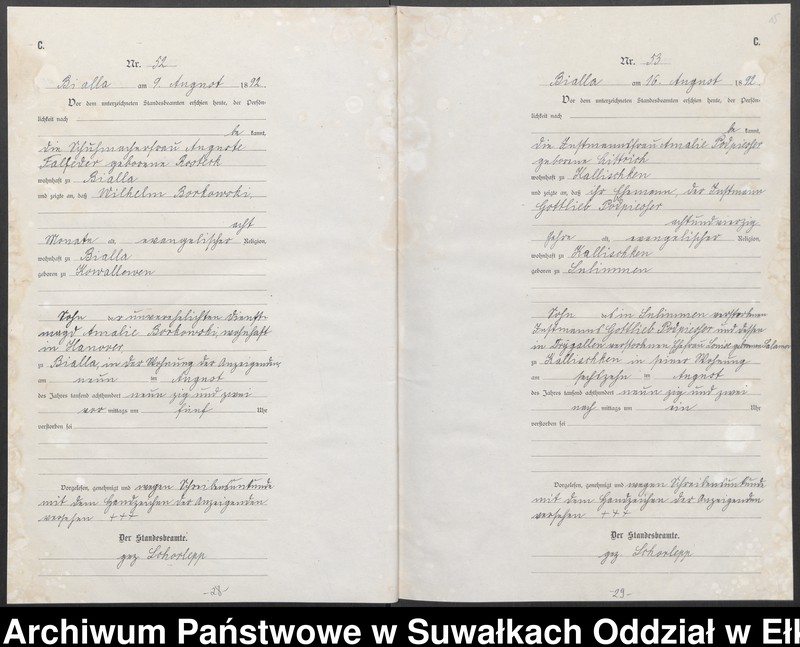 C.
Nr. 52
Bialla am 9. August 1892.
Vor dem unterzeichneten Standesbeamten erschien heute, der Persön-
lichkeit nach
be kannt,
die Schuhmacherfrau Auguste
Falfeder geborene
wohnhaft zu Bialla
und zeigte an, daß Wilhelm Borkowski,
acht
Monate a, evangelischer Religion,
wohnhaft zu Bialla
geboren zu Kowallowen
Sohn der unverehelichten Dienst-
magd Amalie Borkowski, wohnhaft
in Hanover
zu Bialla, in der Wohnung der Anzeigenden
am neun ten August
des Jahres tausend achthundert neun zig und zwei
vor mittags um fünf Uhr
verstorben sei
Vorgelesen, genehmigt und wegen Schreibensunkunde
mit dem Handzeichen der Anzeigenden
versehen +++
Der Standesbeamte.
gez. Schorlepp
-28-
C.
Nr. 53
Bialla am 16. August 1892.
Vor dem unterzeichneten Standesbeamten erschien heute, der Persön-
lichkeit nach
be kannt,
die Instmannsfrau Amalie
geborene
wohnhaft zu Kallischken
und zeigte an, daß ihr Ehemann, der Instmann
Gottlieb
achtundvierzig
Jahre a, evangelischer Religion,
wohnhaft zu Kallischken
geboren zu Sulimmen
Sohn des in Sulimmen verstorbenen
Instmanns Gottlieb und dessen
in Drygallen verstorbenen Ehefrau
zu Kallischken in seiner Wohnung
am sechszehn ten August
des Jahres tausend achthundert neun zig und zwei
nach mittags um ein Uhr
verstorben sei
Vorgelesen, genehmigt und wegen Schreibensunkunde
mit dem Handzeichen der Anzeigenden
versehen +++
Der Standesbeamte.
gez. Schorlepp
-29-
Archiwum Państwowe w Suwałkach Oddział w Ełk